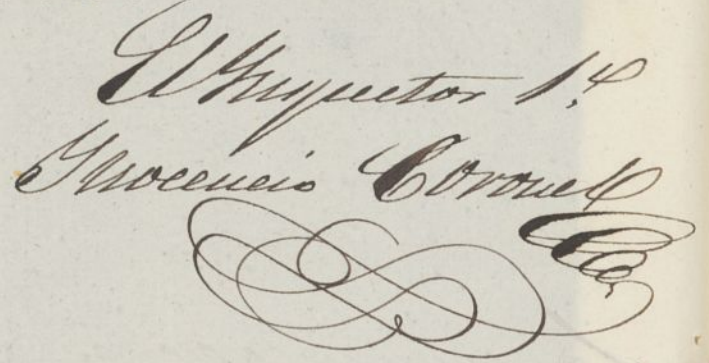 El Inspector 1.º
Inocencio Coronel